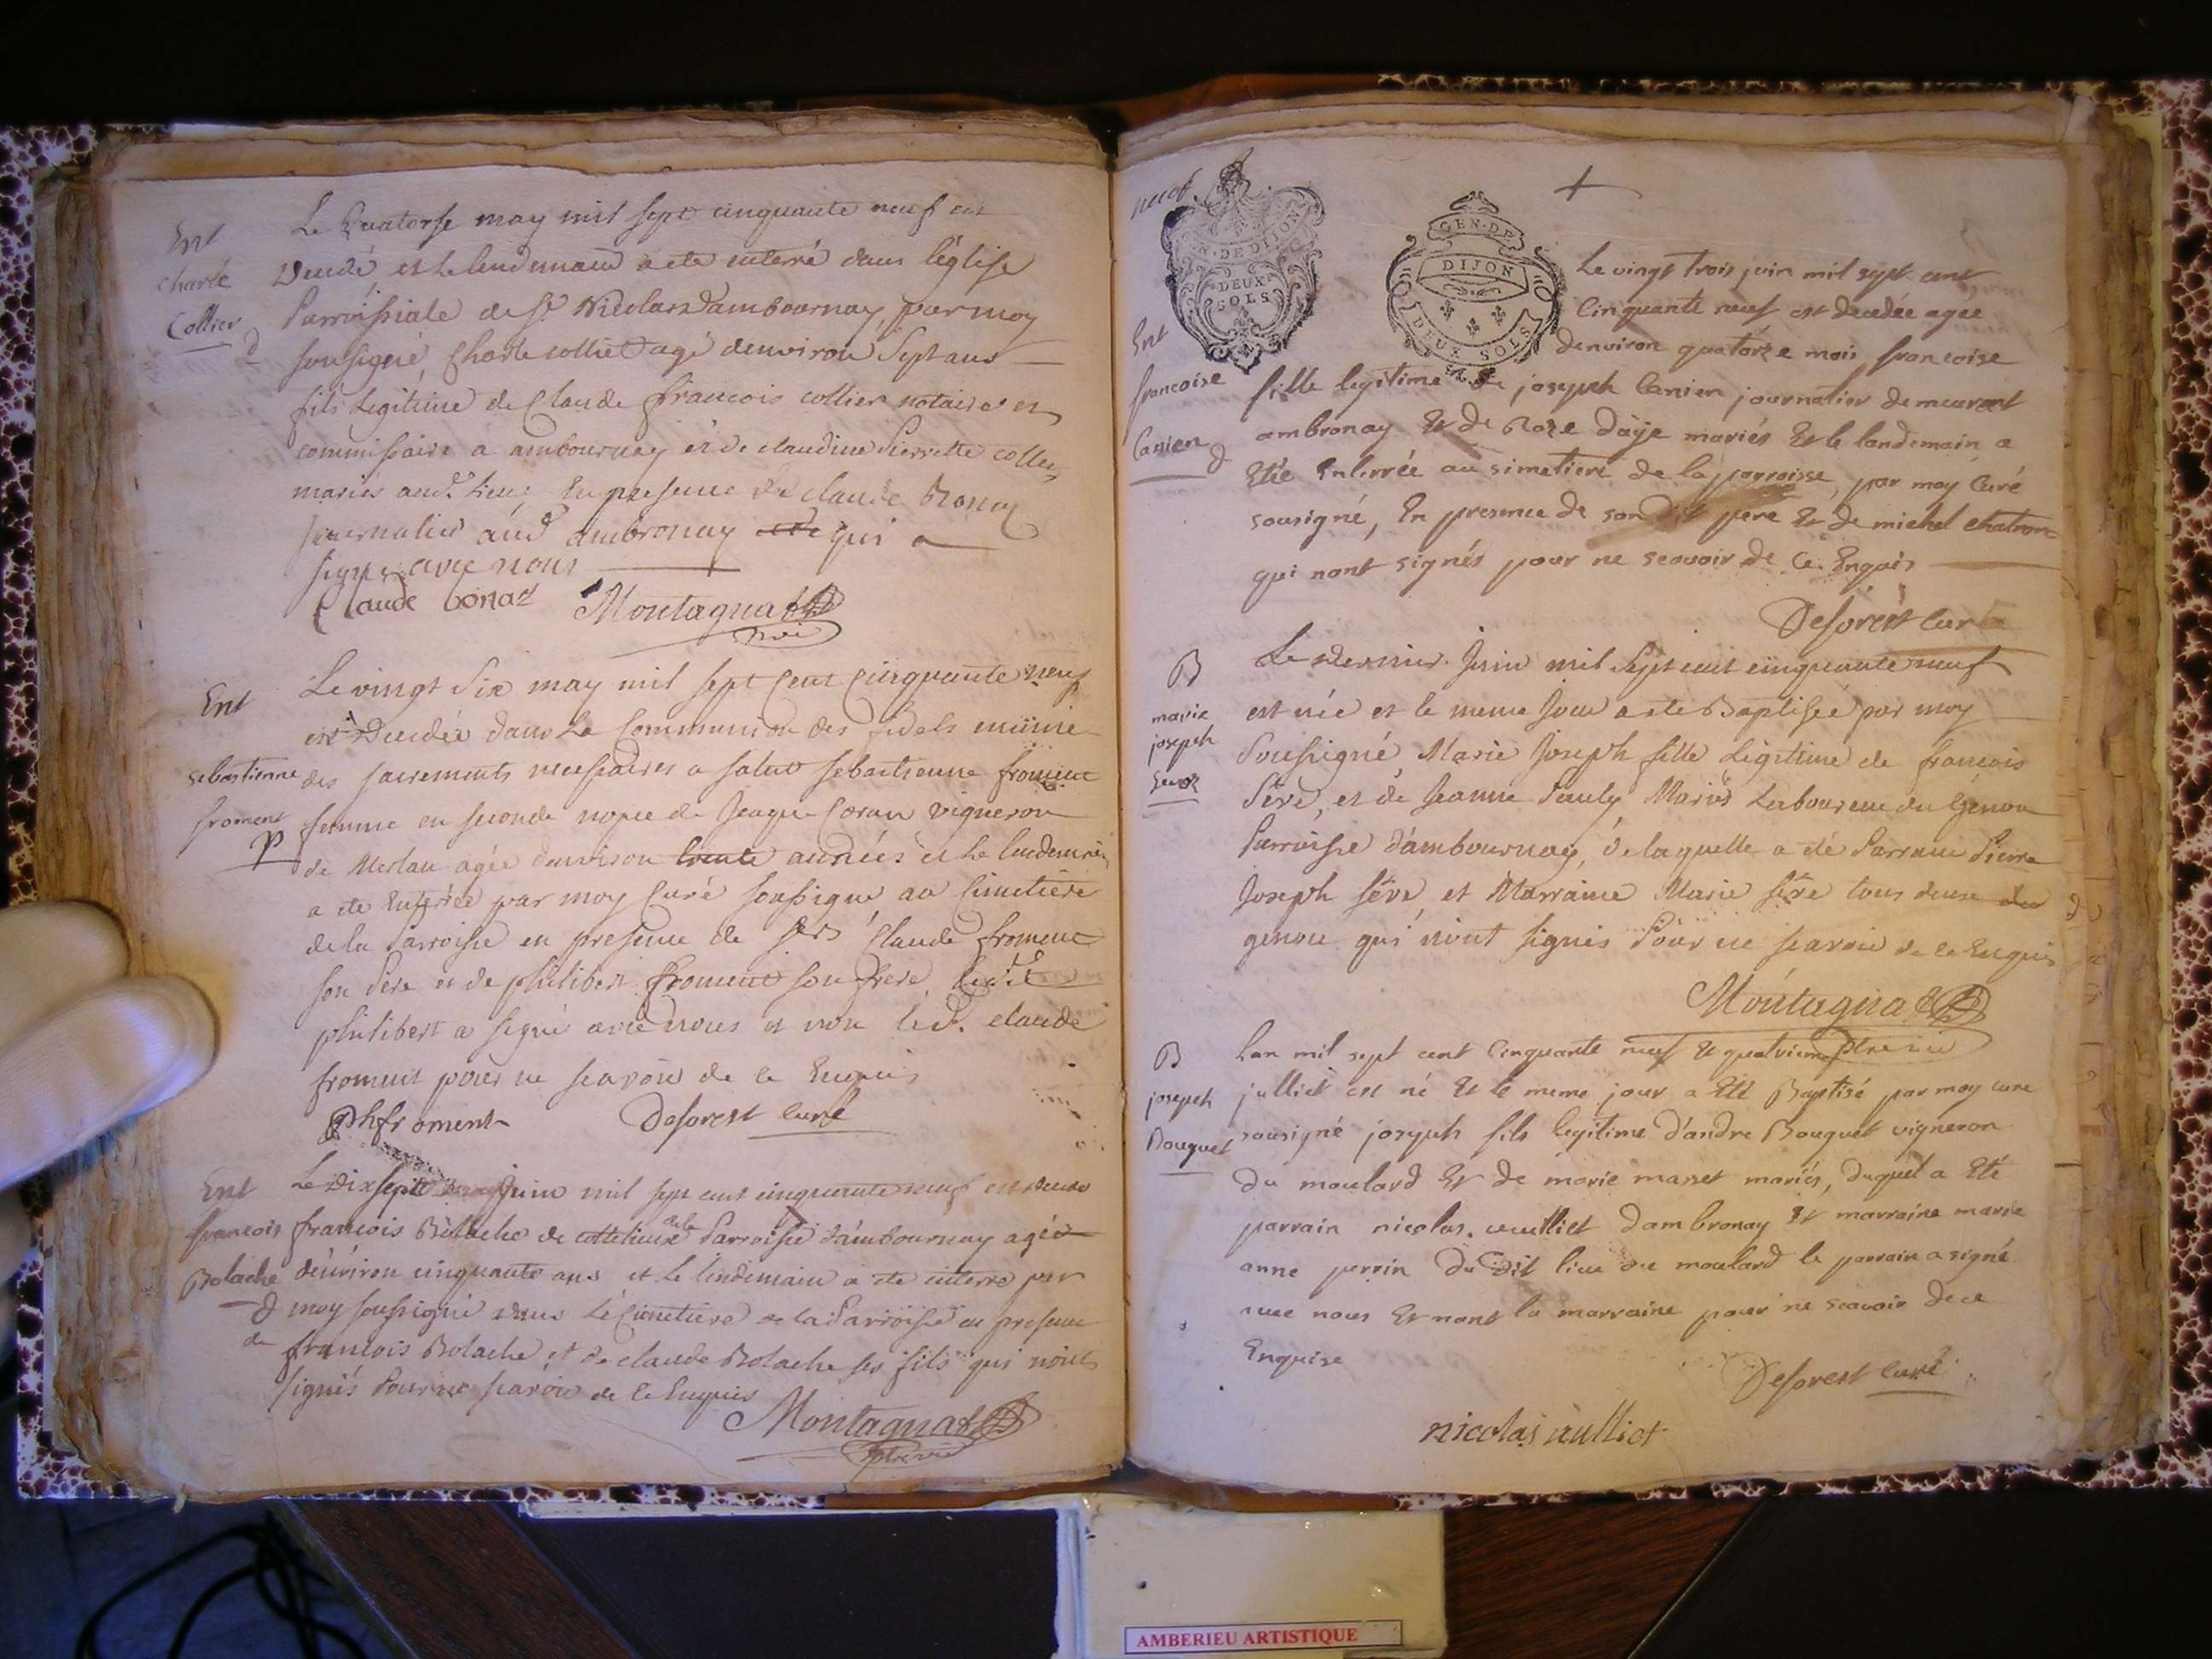 Ent
charle
Collier
d
Le Quatorse may mil sept cinquante neuf est
Decedé et le lendemain a ete enterré dans l'église
Parroissiale de st Nicolas d'ambournay, par moy
soussigné, Charle collier agé denviron Sept ans
fils Legitime de Claude francois collier notaire et
commissaire a ambournay et de claudine Pierrette collet
mariés aud. Lieu; En presence de claude Bonaz
journalier aud ambronay qui a
signé avec nous
Claude bonaz Montagnat
Ent
sebastienne
froment
p
Le vingt Six may mil sept Cent Cinquante neuf
est Decedée dans La Communion des fidels munie
des sacrements necessaires a salut sebastienne froment
femme en seconde nopce de Jacque Coran vigneron
de Merlan agée denviron trente années et le lendemain
a ete Enterrée par moy Curé soussigné au Cimetiere
de la Parroisse en presence de Claude froment
son Pere et de philibert froment son frere, ledit
philibert a signé avec nous et non led. claude
froment pour ne scavoir de ce Enquis
phfroment Deforest curé
Ent
francois
Bolache
d
Le Dix sept Juin mil sept cent cinquante neuf est decedé
francois Bolache de cottelieure de la Parroisse d'ambournay agé
d'environ cinquante ans et le lendemain a ete enterré par
moy soussigné dans le Cimetiere de la Parroisse en presence
de francois Bolache et de claude Bolache ses fils qui n'ont
signés Pour ne scavoir de ce Enquis
Montagnat
neuf
GEN. DE DIJON
DEUX SOLS
GEN. DE
DIJON
DEUX SOLS
Ent
francoise
Canien
d
Le vingt trois juin mil sept cent
Cinquante neuf est decedée agée
denviron quatorze mois francoise
fille legitime de joseph Canien journalier demeurant
ambronay Et de Roze Daÿe mariés Et le landemain a
Etée Enterrée au simetiere de la parroisse, par moy Curé
sousigné, En presence de son dit pere Et de michel chatron
qui nont signés pour ne scavoir de ce Enquis
Deforest curé
B
marie
joseph
seve
Le dernier Juin mil Sept cent cinquante neuf
est née et le meme Jour a ete Baptisée par moy
Soussigné Marie Joseph fille Légitime de francois
Séve, et de Jeanne Pauly Mariés Laboureur du Genou
Parroisse d'ambournay, de laquelle a été Parrain Pierre
Joseph séve et Marraine Marie séve tous deux du
genou qui n'ont signés Pour ne scavoir de ce Enquis
Montagnat
B
joseph
Bouquet
Lan mil sept cent Cinquante neuf Et quatrieme
julliet est né Et le meme jour a Eté Baptisé par moy cure
sousigné joseph fils legitime d'andre Bouquet vigneron
du moulard Et de marie marset mariés, duquel a Eté
parrain nicolas vuilliet dambronay Et marraine marie
anne perrin du dit lieu du moulard le parrain a signé
avec nous Et nont la marraine pour ne scavoir de ce
Enquise
Deforest curé
nicolas vulliet
AMBERIEU ARTISTIQUE